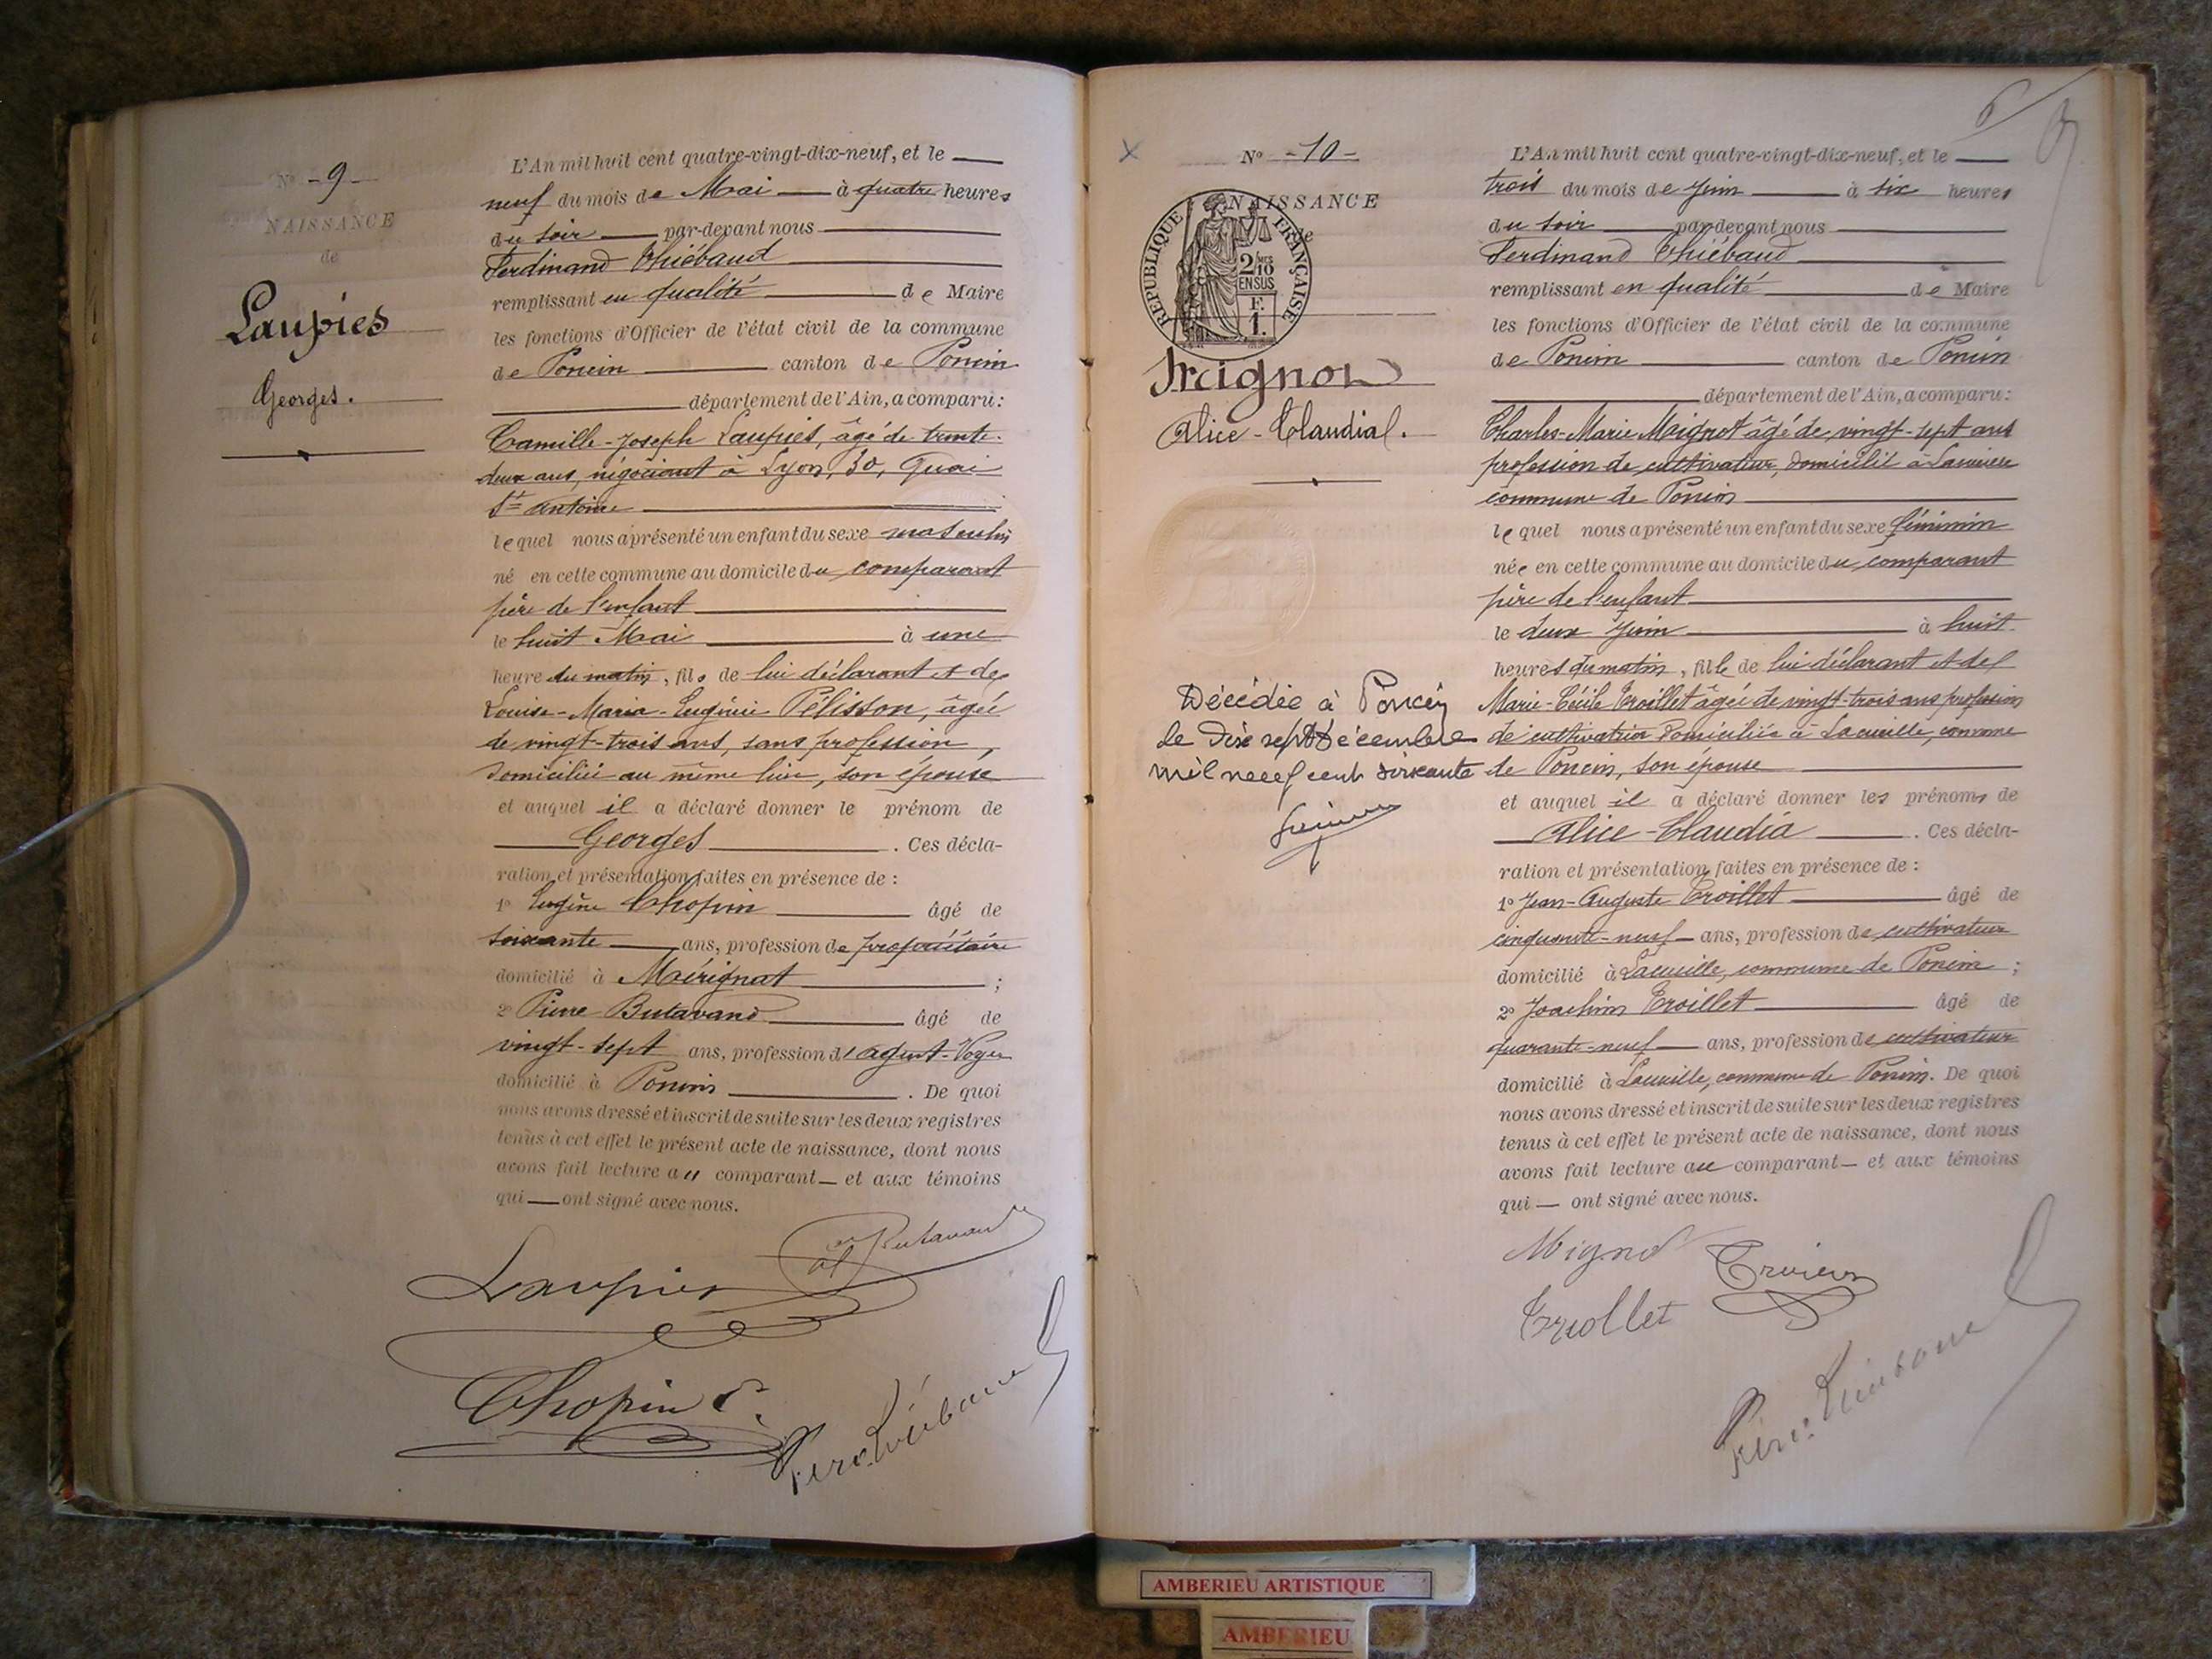 Nº -9-
NAISSANCE
de
Laupies
Georges.
L'An mil huit cent quatre-vingt-dix-neuf, et le
neuf du mois de Mai à quatre heures
du soir par-devant nous
Ferdinand Thiébaud
remplissant en qualité de Maire
les fonctions d'Officier de l'état civil de la commune
de Poncin canton de Poncin
département de l'Ain, a comparu:
Camille-Joseph Laupies, âgé de trente-
deux ans, négociant à Lyon, 30, Quai
St Antoine
lequel nous a présenté un enfant du sexe masculin
né en cette commune au domicile du comparant
père de l'enfant
le huit Mai à une
heure du matin, fils de lui déclarant et de
Louise-Maria-Eugénie Pélisson, âgée
de vingt-trois ans, sans profession,
domiciliée au même lieu, son épouse
et auquel il a déclaré donner le prénom de
Georges. Ces décla-
ration et présentation faites en présence de :
1º Eugène Chopin âgé de
soixante ans, profession de propriétaire
domicilié à Mérignat ;
2º Pierre Butavand âgé de
vingt-sept ans, profession d'agent-Voyer
domicilié à Poncin. De quoi
nous avons dressé et inscrit de suite sur les deux registres
tenus à cet effet le présent acte de naissance, dont nous
avons fait lecture au comparant et aux témoins
qui ont signé avec nous.
Butavand
Laupies
Chopin
Nº -10-
NAISSANCE
de
REPUBLIQUE FRANÇAISE
2/10
EN SUS
F.
1.
Alice-Claudia.
Décédée à Poncin
le dix sept Décembre
mil neuf cent soixante
6
L'An mil huit cent quatre-vingt-dix-neuf, et le
trois du mois de Juin à six heures
du soir par-devant nous
Ferdinand Thiébaud
remplissant en qualité de Maire
les fonctions d'Officier de l'état civil de la commune
de Poncin canton de Poncin
département de l'Ain, a comparu:
Charles-Marie Mignot âgé de vingt-sept ans
profession de cultivateur, domicilié à
commune de Poncin
lequel nous a présenté un enfant du sexe féminin
née en cette commune au domicile du comparant
père de l'enfant
le deux Juin à huit
heures du matin, fille de lui déclarant et de
Marie-Cécile Troillet âgée de vingt-trois ans profession
de domiciliée à Lacueille, commune
de Poncin, son épouse
et auquel il a déclaré donner les prénoms de
Alice-Claudia. Ces décla-
ration et présentation faites en présence de :
1º Jean-Auguste Troillet âgé de
cinquante-neuf ans, profession de cultivateur
domicilié à Lacueille, commune de Poncin ;
2º Joachim Troillet âgé de
quarante-neuf ans, profession de cultivateur
domicilié à Lacueille, commune de Poncin. De quoi
nous avons dressé et inscrit de suite sur les deux registres
tenus à cet effet le présent acte de naissance, dont nous
avons fait lecture au comparant et aux témoins
qui ont signé avec nous.
AMBERIEU ARTISTIQUE
AMBERIEU